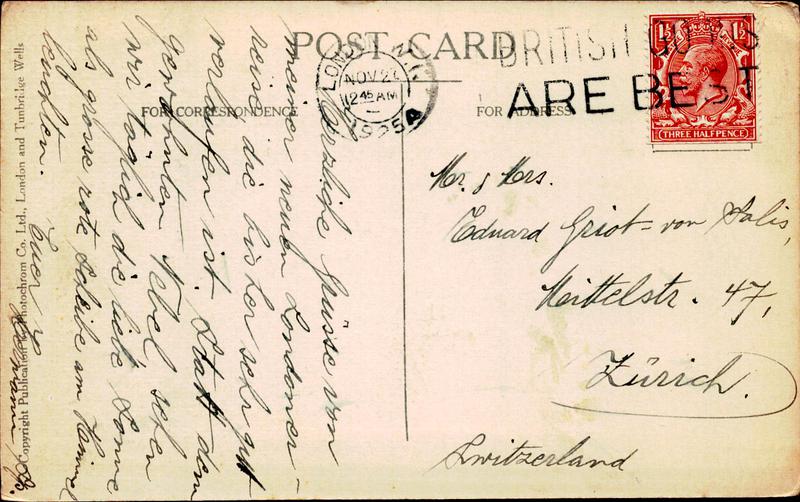 POST CARD
FOR CORRESPONDENCE
FOR ADDRESS
LONDON
NOV 2
12 45 AM
1925
A
BRITISH GOODS
ARE BEST
1½ 1½
THREE HALFPENCE
Herzliche Grüsse von
meiner neuen Londoner-
reise die bisher sehr gutt
verlaufen ist. Statt dem
gewohnten Nebel sehen
wir täglich die liebe Sonne
als grosse rote Scheibe am Himmel
leuchten.
Euer
Hermann
Mr. & Mrs.
Eduard Griot-von Salis,
Mittelstr. 47,
Zürich.
Switzerland
Copyright Publication Photochrom Co. Ltd., London and Tunbridge Wells